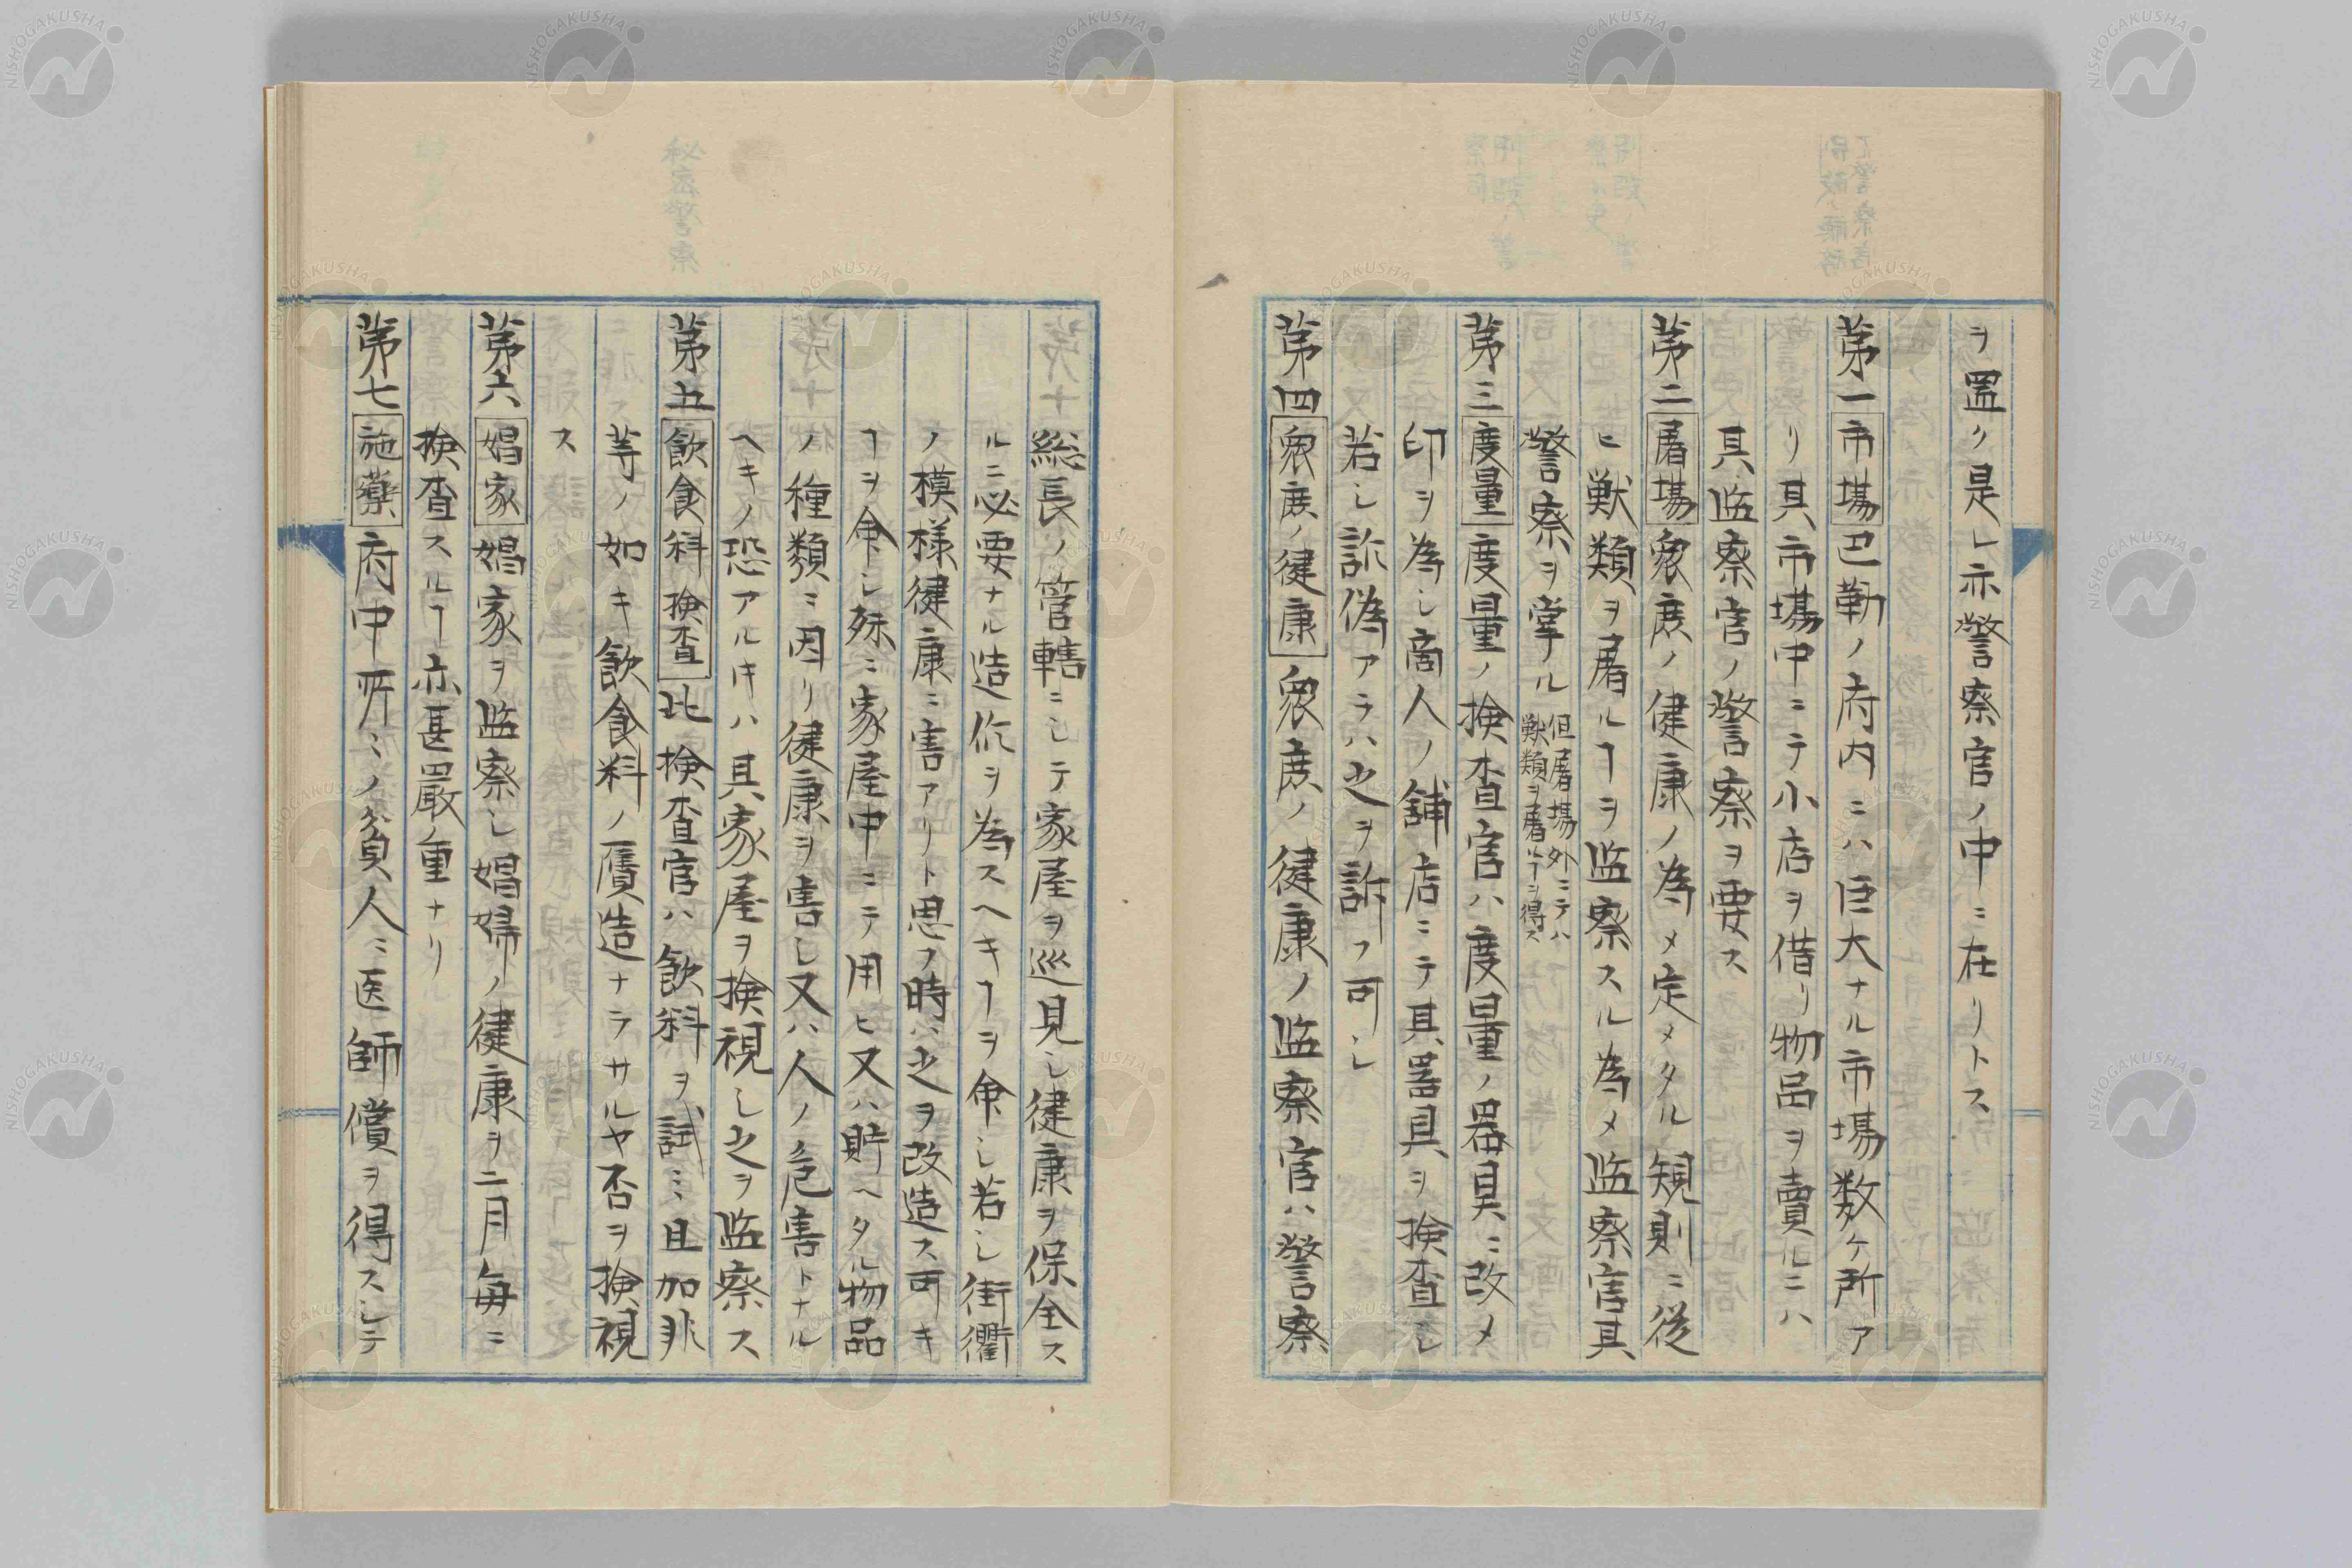 ヲ置ク是レ亦警察官ノ中ニ在リトス
第一市場巴勒ノ府内ニハ巨大ナル市場数ケ所ア
リ其市場中ニテ小店ヲ借リ物品ヲ賣ルニハ
其監察官ノ警察ヲ要ス
第二屠場衆庶ノ健康ノ為メ定メタル規則ニ従
ヒ獣類ヲ屠ルヿヲ監察スル為メ監察官其
警察ヲ掌ル但屠場外ニテハ
獣類ヲ屠ルヿヲ得ス
第三度量度量ノ検査官ハ度量ノ器具ニ改メ
印ヲ為シ商人ノ舗店ニテ其器具ヲ検査シ
若シ詐偽アラハ之ヲ訴フ可シ
第四衆庶ノ健康衆庶ノ健康ノ監察官ハ警察
総長ノ管轄ニシテ家屋ヲ巡見シ健康ヲ保全ス
ルニ必要ナル造作ヲ為スヘキヿヲ命シ若シ街衢
ノ模様健康ニ害アリト思フ時ハ之ヲ改造ス可キ
ヿヲ命シ殊ニ家屋中ニテ用ヒ又ハ貯ヘタル物品
ノ種類ニ因リ健康ヲ害シ又ハ人ノ危害トナル
ヘキノ恐アルキハ其家屋ヲ検視シ之ヲ監察ス
第五飲食料検査此検査官ハ飲料ヲ試ミ且加非
等ノ如キ飲食料ノ贋造ナラサルヤ否ヲ検視
ス
第六娼家娼家ヲ監察シ娼婦ノ健康ヲ二月毎ニ
検査スルヿ亦甚嚴重ナリ
第七施藥府中所々ノ貧人ニ医師償ヲ得スシテ
NISHOGAKUSHA